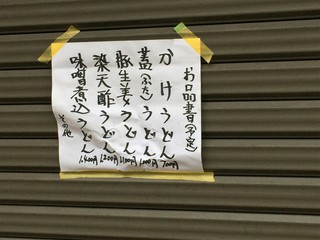 お品書(予定)
かけうどん 700円
蓋(ふた)うどん 1,000円
豚生姜うどん 1,100円
梁天酢うどん 1,200円
味噌煮込うどん 1,400円
その他